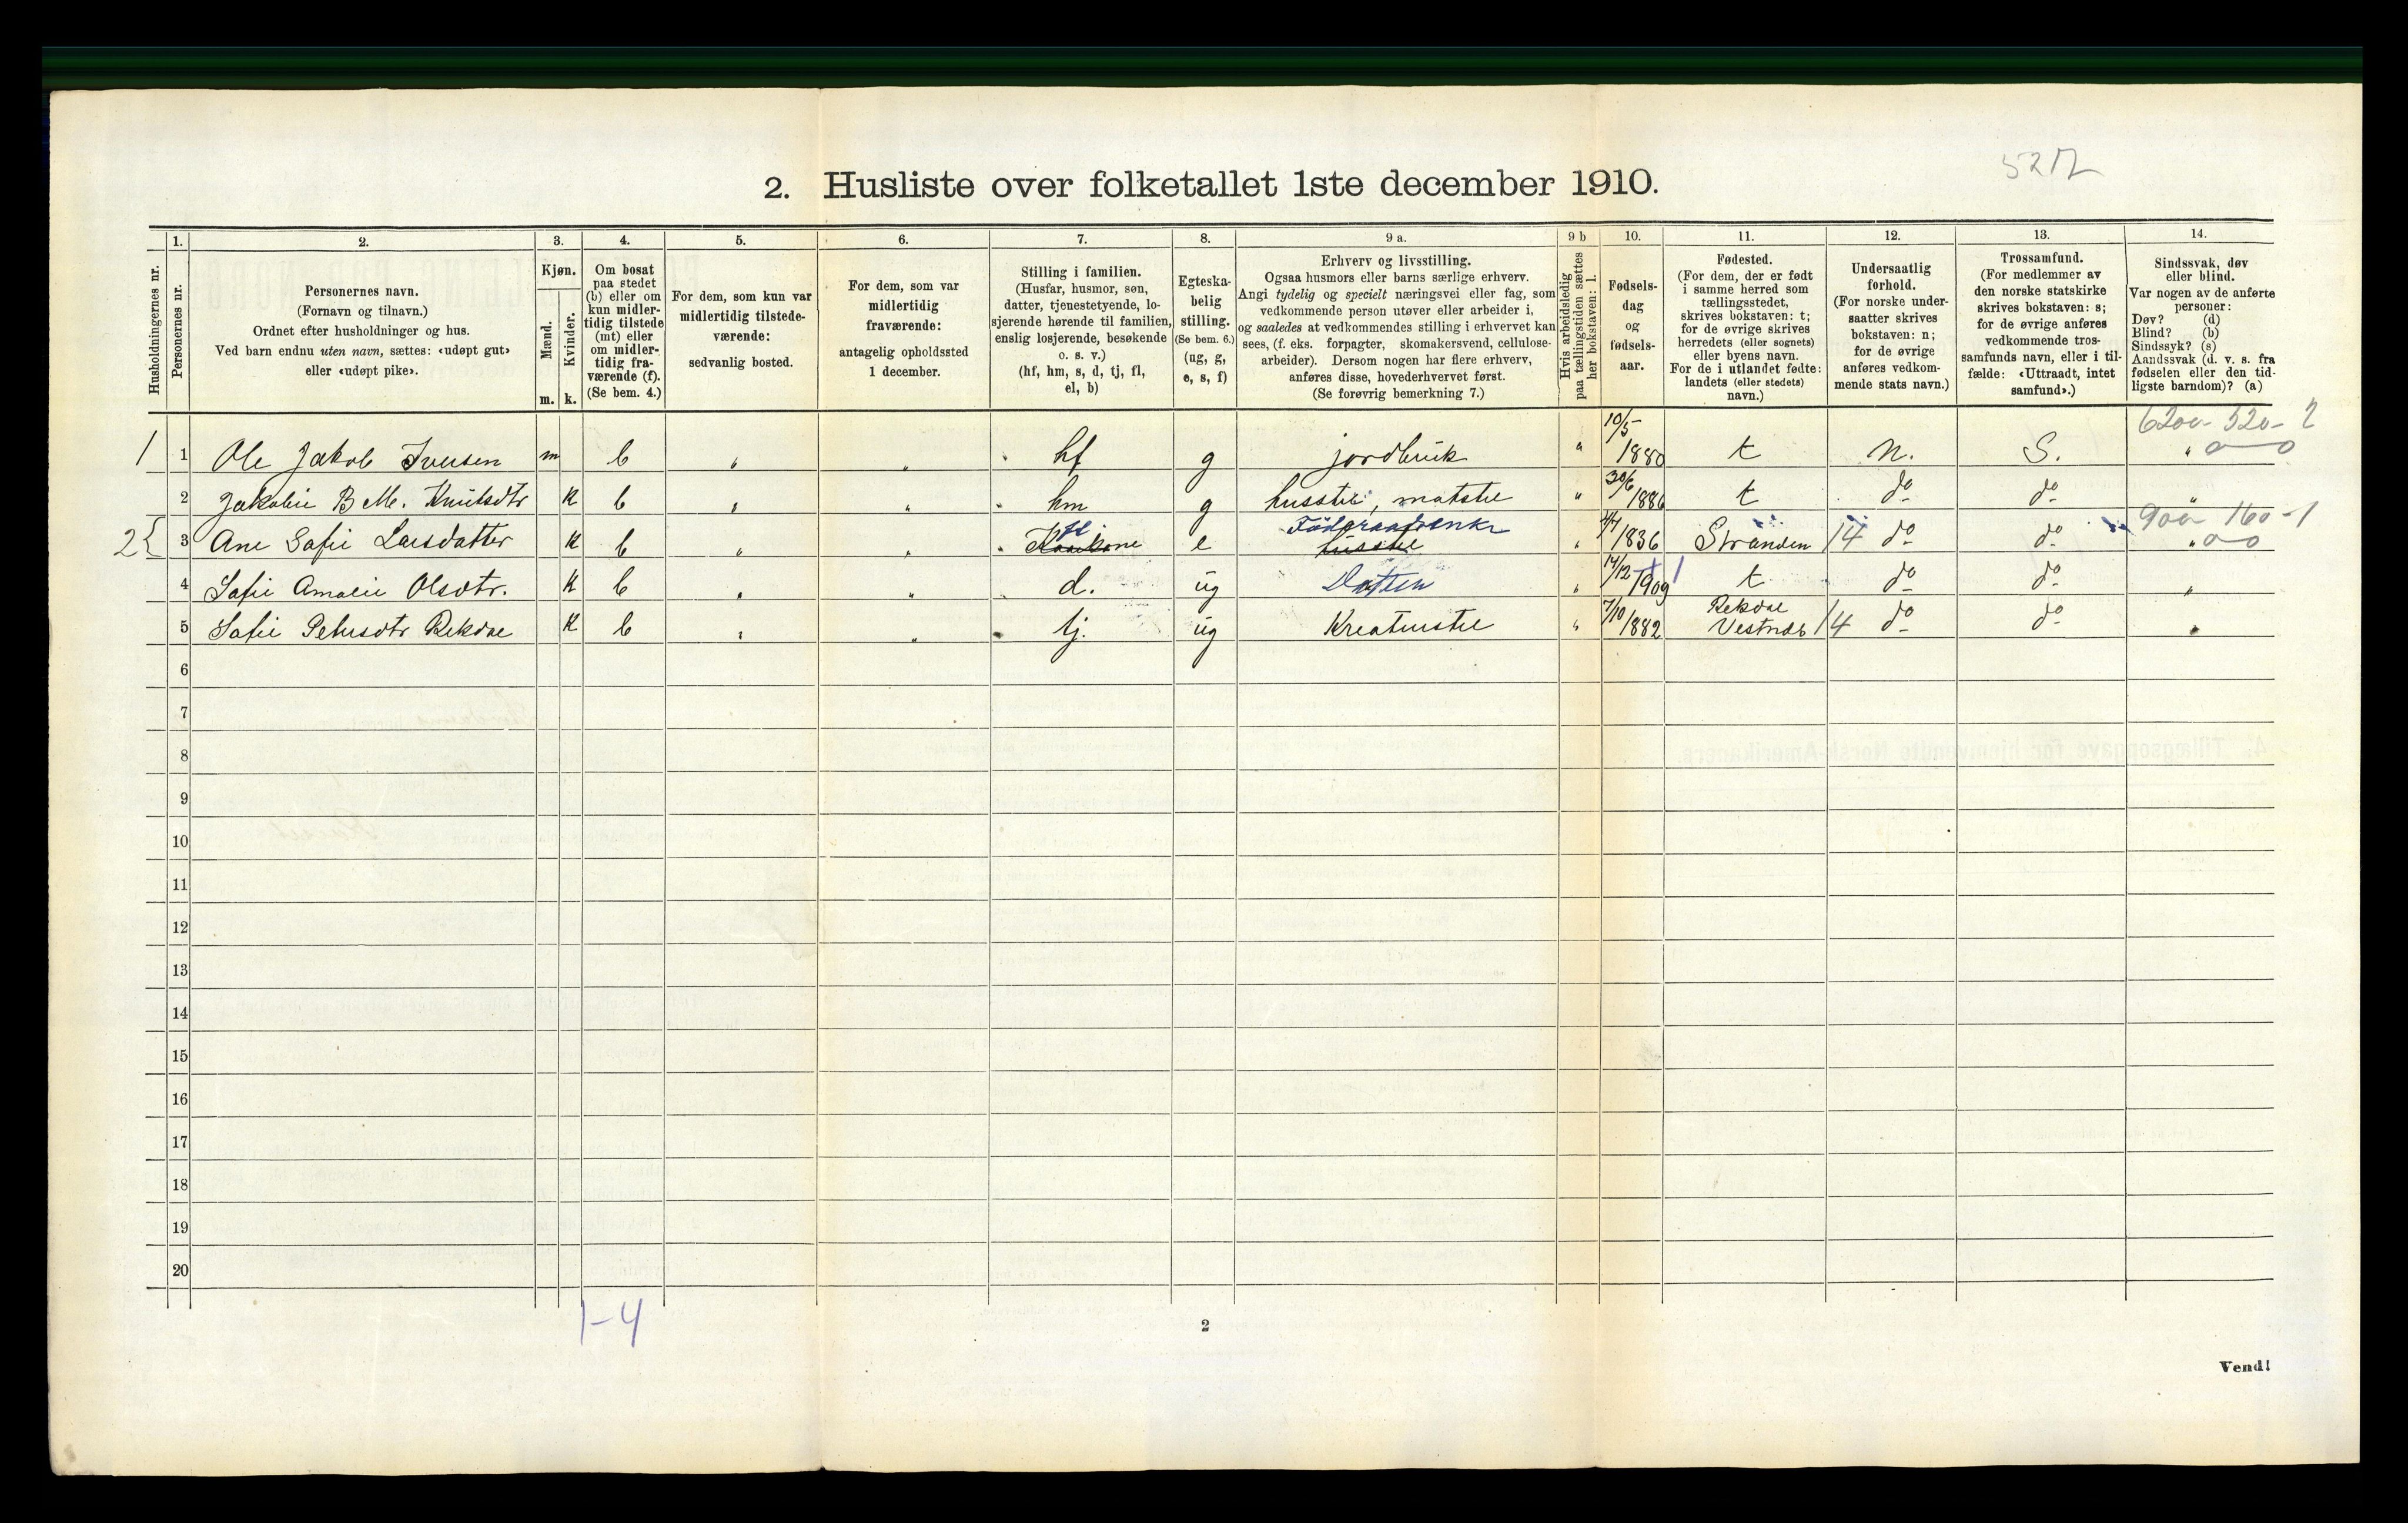 5212
2. Husliste over folketallet 1ste december 1910.
Husholdningernes nr.
1. Personernes nr.
2.
Personernes navn.
(Fornavn og tilnavn.)
Ordnet efter husholdninger og hus.
Ved barn endnu uten navn, sættes: «udøpt gut»
eller «udøpt pike».
3.
Kjøn.
Mænd. m.
Kvinder. k.
4.
Om bosat
paa stedet
(b) eller om
kun midler-
tidig tilstede
(mt) eller
om midler-
tidig fra-
værende (f).
(Se bem. 4.)
5.
For dem, som kun var
midlertidig tilstede-
værende:
sedvanlig bosted.
6.
For dem, som var
midlertidig
fraværende:
antagelig opholdssted
1 december.
7.
Stilling i familien.
(Husfar, husmor, søn,
datter, tjenestetyende, lo-
sjerende hørende til familien,
enslig losjerende, besøkende
o. s. v.)
(hf, hm, s, d, tj, fl,
el, b)
8.
Egteska-
belig
stilling.
(Se bem. 6.)
(ug, g,
e, s, f)
9 a.
Erhverv og livsstilling.
Ogsaa husmors eller barns særlige erhverv.
Angi tydelig og specielt næringsvei eller fag, som
vedkommende person utøver eller arbeider i,
og saaledes at vedkommendes stilling i erhvervet kan
sees, (f. eks. forpagter, skomakersvend, cellulose-
arbeider). Dersom nogen har flere erhverv,
anføres disse, hovederhvervet først.
(Se forøvrig bemerkning 7.)
9 b
Hvis arbeidsledig
paa tællingstiden sættes
her bokstaven: l.
10.
Fødsels-
dag
og
fødsels-
aar.
11.
Fødested.
(For dem, der er født
i samme herred som
tællingsstedet,
skrives bokstaven: t;
for de øvrige skrives
herredets (eller sognets)
eller byens navn.
For de i utlandet fødte:
landets (eller stedets)
navn.)
12.
Undersaatlig
forhold.
(For norske under-
saatter skrives
bokstaven: n;
for de øvrige
anføres vedkom-
mende stats navn.)
13.
Trossamfund.
(For medlemmer av
den norske statskirke
skrives bokstaven: s;
for de øvrige anføres
vedkommende tros-
samfunds navn, eller i til-
fælde: «Uttraadt, intet
samfund».)
14.
Sindssvak, døv
eller blind.
Var nogen av de anførte
personer:
Døv? (d)
Blind? (b)
Sindssyk? (s)
Aandssvak (d. v. s. fra
fødselen eller den tid-
ligste barndom)? (a)
6200 - 520 - 2
1 1 Ole Jakob Iversen m b " " hf g jordbruk " 10/5 1880 t n. S. "
2 Jakobie B M. Knutsdtr k b " " hm g husstel, matstel " 30/6 1886 t do do "
900 160 - 1
2{ 3 Ane Sofie Larsdatter k b " " Kaarkone e husstel Føderaadsenke " 1836 Stranden 14 do do "
4 Sofie Amalie Olsdtr. k b " " d. ug Datter " 14/12 1909 t do do "
5 Sofie Petersdtr Rekdae k b " " tj. ug Kreaturstel " 7/10 1882 Rekdae Vestnes 14 do do "
6
7
8
9
10
11
12
13
14
15
16
17
18
19
20
1-4
2
Vend!